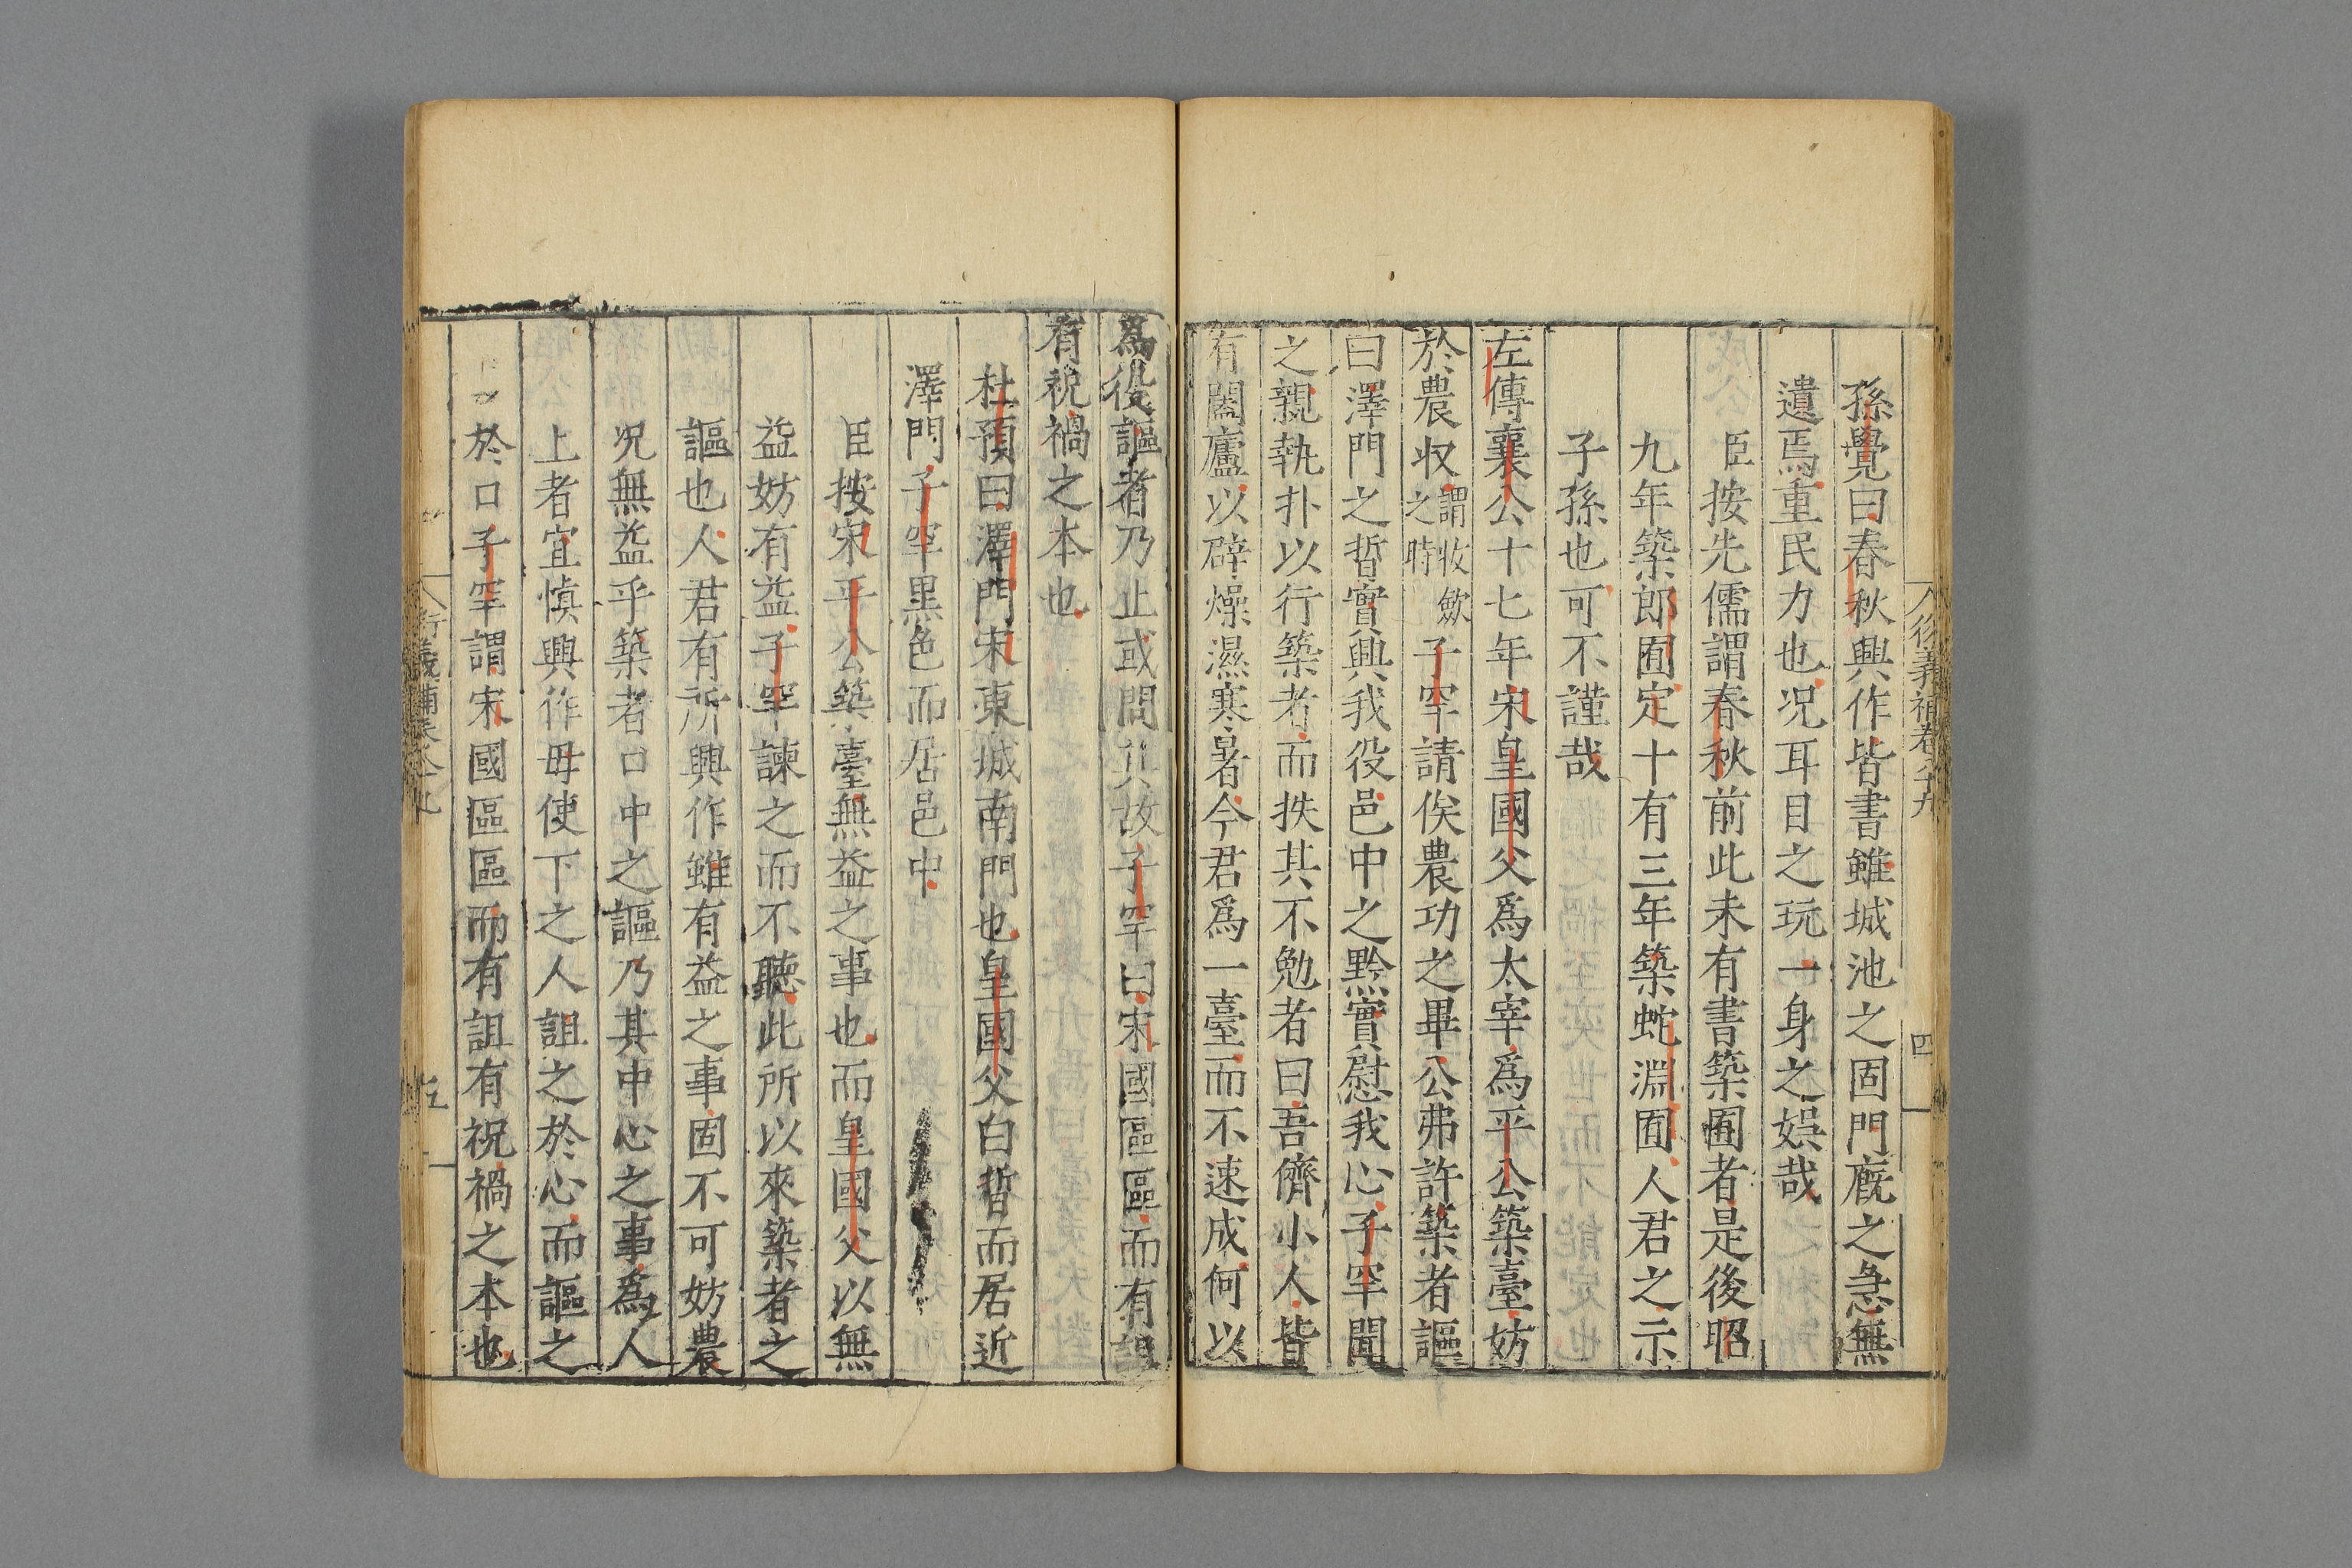 衍義補卷八十九
四
孫覺曰春秋興作皆書雖城池之固門廐之急無
遺焉重民力也况耳目之玩一身之娛哉
臣按先儒謂春秋前此未有書築囿者是後昭
九年築郎囿定十有三年築蛇淵囿人君之示
子孫也可不謹哉
左傳襄公十七年宋皇國父爲太宰爲平公築臺妨
於農收謂收斂之時子罕請俟農功之畢公弗許築者謳
曰澤門之晳實興我役邑中之黔實慰我心子罕聞
之親執扑以行築者而抶其不勉者曰吾儕小人皆
有闔廬以辟燥濕寒暑今君爲一臺而不速成何以
爲役謳者乃止或問其故子罕曰宋國區區而有詛
有祝禍之本也
杜預曰澤門宋東城南門也皇國父白晳而居近
澤門子罕黑色而居邑中
臣按宋平公築臺無益之事也而皇國父以無
益妨有益子罕諫之而不聽此所以來築者之
謳也人君有所興作雖有益之事固不可妨農
况無益乎築者口中之謳乃其中心之事爲人
上者宜慎興作毋使下之人詛之於心而謳之
於口子罕謂宋國區區而有詛有祝禍之本也
衍義補卷八十九
五